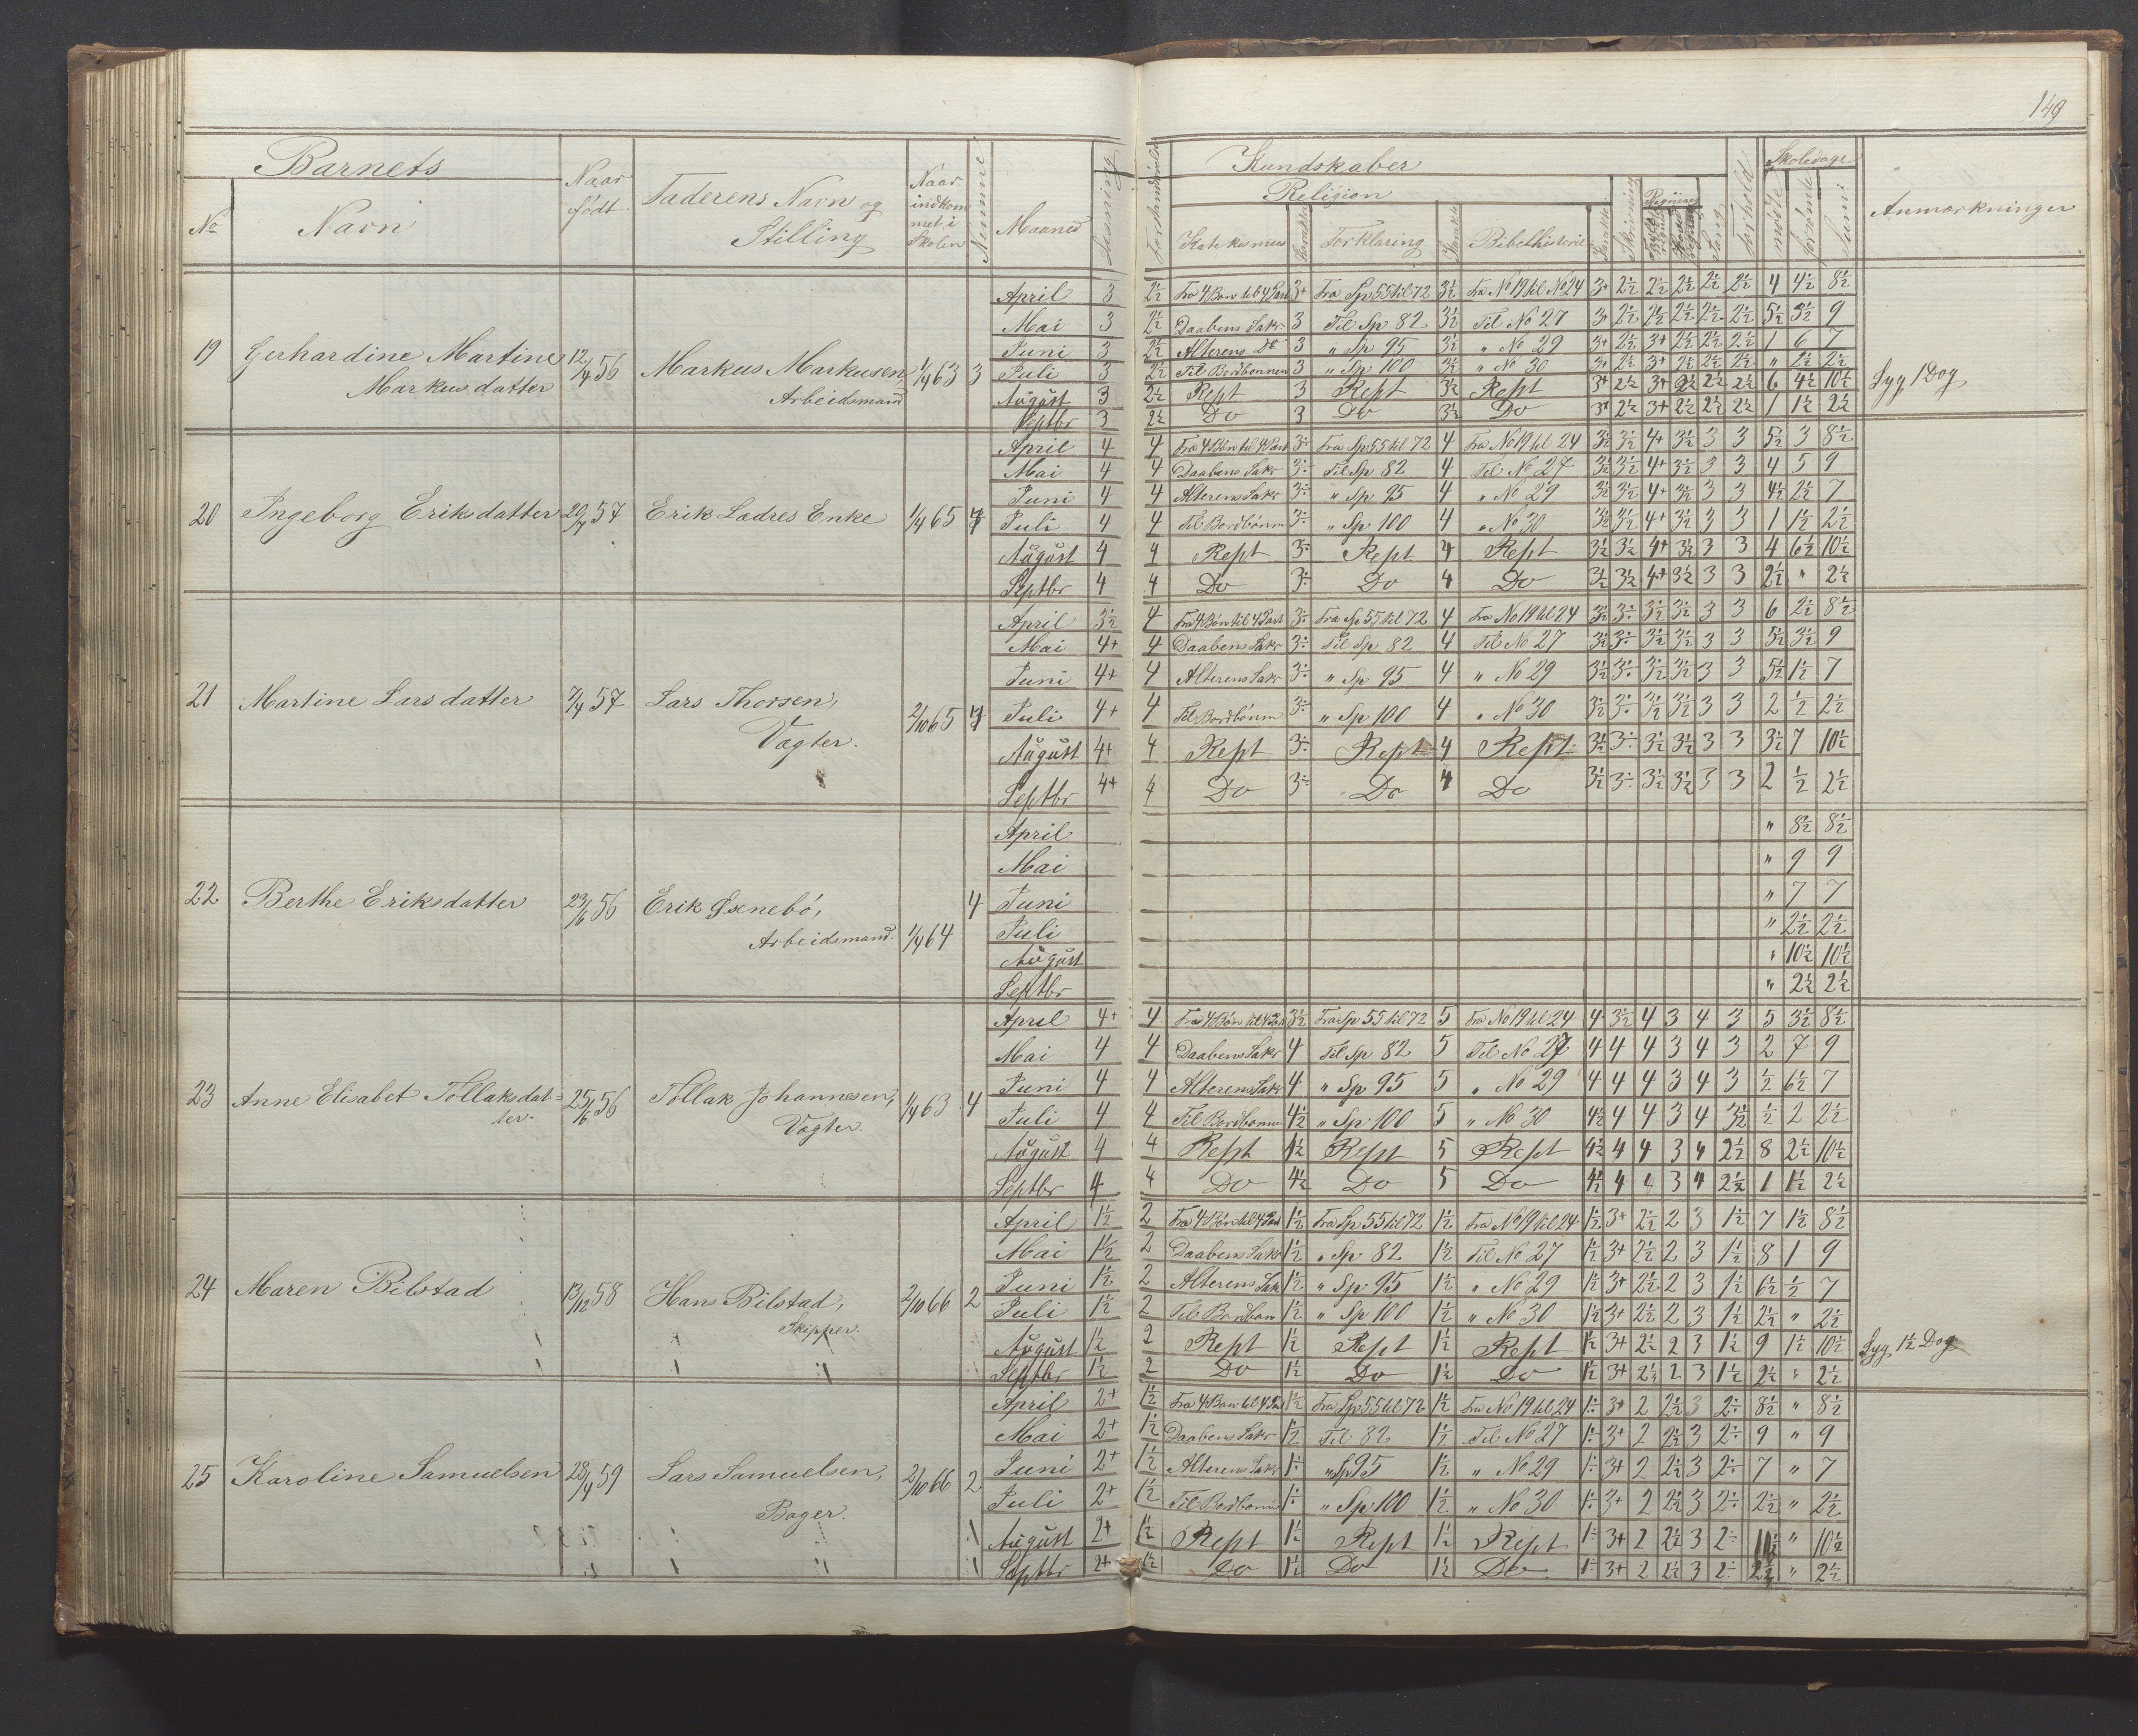 149
Barnets
No
Navn
Naar født
Faderens Navn og Stilling
Naar indkommet i Skolen
Nemme
Maaned
Læsning
Kundskaber
Religion
Katekismus
Karakter
Forklaring
Karakter
Bibelhistorie
Karakter
Skrivning
Regning
Sang
Forhold
Skoledage
mødte
forsømte
Sum
Anmærkninger
19 Gerhardine Martine Markusdatter 12/4 56 Markus Markusen, Arbeidsmand 1/4 63 3
April 3 2½ Fra 4 Bøn til 4 Part 3+ Fra Sp 55 til 72 3½ Fra No 19 til No 24 3+ 2½ 2½ 2½ 2½ 2½ 4 4½ 8½
Mai 3 2½ Daabens Sakr 3 Til Sp 82 3½ Til No 27 3+ 2½ 2½ 2½ 2½ 2½ 5½ 3½ 9
Juni 3 2½ Alterens Do 3 " Sp 95 3½ " No 29 3+ 2½ 3+ 2½ 2½ 2½ 1 6 7
Juli 3 2½ Til Bordbønnen 3 " Sp 100 3½ " No 30 3+ 2½ 3+ 2½ 2½ 2½ " 2½ 2½
August 3 2½ Rept 3 Rept 3½ Rept 3+ 2½ 3+ 2½ 2½ 2½ 6 4½ 10½ Syg 1 Dag
Septbr 3 2½ Do 3 Do 3½ Do 3+ 2½ 3+ 2½ 2½ 2½ 1 1½ 2½
20 Ingeborg Eriksdatter 29/4 57 Erik Lædres Enke 1/4 65 4
April 4 4 Fra 4 Bøn til 4 Part 3÷ Fra Sp 55 til 72 4 Fra No 19 til 24 3½ 3½ 4+ 3½ 3 3 5½ 3 8½
Mai 4 4 Daabens Sakr 3÷ Til Sp 82 4 Til No 27 3½ 3½ 4+ 3½ 3 3 4 5 9
Juni 4 4 Alterens Sakr 3÷ " Sp 95 4 " No 29 3½ 3½ 4+ 3½ 3 3 4½ 2½ 7
Juli 4 4 Til Bordbønn 3÷ " Sp 100 4 " No 30 3½ 3½ 4+ 3½ 3 3 1 1½ 2½
August 4 4 Rept 3÷ Rept 4 Rept 3½ 3½ 4+ 3½ 3 3 4 6½ 10½
Septbr 4 4 Do 3÷ Do 4 Do 3½ 3½ 4+ 3½ 3 3 2½ " 2½
21 Martine Larsdatter 7/4 57 Lars Thorsen, Vægter. 2/10 65 4
April 3½ 4 Fra 4 Bøn til 4 Part 3÷ Fra Sp 55 til 72 4 Fra No 19 til 24 3½ 3÷ 3½ 3½ 3 3 6 2½ 8½
Mai 4+ 4 Daabens Sakr 3÷ Til Sp 82 4 Til No 27 3½ 3÷ 3½ 3½ 3 3 5½ 3½ 9
Juni 4+ 4 Alterens Sakr 3÷ " Sp 95 4 " No 29 3½ 3÷ 3½ 3½ 3 3 5½ 1½ 7
Juli 4+ 4 Til Bordbønn 3÷ " Sp 100 4 " No 30 3½ 3÷ 3½ 3½ 3 3 2 ½ 2½
August 4+ 4 Rept 3÷ Rept 4 Rept 3½ 3÷ 3½ 3½ 3 3 3½ 7 10½
Septbr 4+ 4 Do 3÷ Do 4 Do 3½ 3÷ 3½ 3½ 3 3 2 ½ 2½
22 Berthe Eriksdatter 23/6 56 Erik Øxnebö, Arbeidsmand. 1/4 64 4
April " 8½ 8½
Mai " 9 9
Juni " 7 7
Juli " 2½ 2½
August " 10½ 10½
Septbr " 2½ 2½
23 Anne Elisabet Tollaksdatter. 25/6 56 Tollak Johannesen, Vægter. 1/4 63 4
April 4+ 4 Fra 4 Bøn til 4 Part 3½ Fra Sp 55 til 72 5 Fra No 19 til 24 4 3½ 4 3 4 3 5 3½ 8½
Mai 4 4 Daabens Sakr 4 Til Sp 82 5 Til No 27 4 4 4 3 4 3 2 7 9
Juni 4 4 Alterens Sakr 4 " Sp 95 5 " No 29 4 4 4 3 4 3 ½ 6½ 7
Juli 4 4 Til Bordbønn 4½ " Sp 100 5 " No 30 4½ 4 4 3 4 3½ ½ 2 2½
August 4 4 Rept 4½ Rept 5 Rept 4½ 4 4 3 4 2½ 8 2½ 10½
Septbr 4 4 Do 4½ Do 5 Do 4½ 4 4 3 4 2½ 1 1½ 2½
24 Maren Bilstad 13/12 58 Hans Bilstad, Skipper. 2/10 66 2
April 1½ 2 Fra 4 Bøn til 4 Part 1½ Fra Sp 55 til 72 1½ Fra No 19 til 24 1½ 3+ 2½ 2 3 1½ 7 1½ 8½
Mai 1½ 2 Daabens Sakr 1½ " Sp 82 1½ Til No 27 1½ 3+ 2½ 2 3 1½ 8 1 9
Juni 1½ 2 Alterens Sak 1½ " Sp 95 1½ " No 29 1½ 3+ 2½ 2 3 1½ 6½ ½ 7
Juli 1½ 2 Til Bordbøn 1½ " Sp 100 1½ " No 30 1½ 3+ 2½ 2 3 1½ 2½ " 2½
August 1½ 2 Rept 1½ Rept 1½ Rept 1½ 3+ 2½ 2 3 1½ 9 1½ 10½ Syg 1½ Dag
Septbr 1½ 2 Do 1½ Do 1½ Do 1½ 3+ 2½ 2 3 1½ 2½ " 2½
25 Karoline Samuelsen 28/4 59 Lars Samuelsen, Bager. 2/10 66 2
April 2+ 1½ Fra 4 Bøn til 4 Part 1½ Fra Sp 55 til 72 1½ Fra No 19 til 24 1÷ 3+ 2 2½ 3 2÷ 8½ " 8½
Mai 2+ 1½ Daabens Sakr 1½ Til 82 1½ Til No 27 1÷ 3+ 2 2½ 3 2÷ 9 " 9
Juni 2+ 1½ Alterens Sakr 1÷ " Sp 95 1½ " No 29 1÷ 3+ 2 2½ 3 2÷ 7 " 7
Juli 2+ 1½ Til Bordbønn 1÷ " Sp 100 1½ " No 30 1÷ 3+ 2 2½ 3 2÷ 2½ " 2½
August 2+ 1½ Rept 1½ Rept 1½ Rept 1÷ 3+ 2 2½ 3 2÷ 10½ " 10½
Septbr 2+ 1½ Do 1½ Do 1½ Do 1÷ 3+ 2 2½ 3 2÷ 2½ " 2½